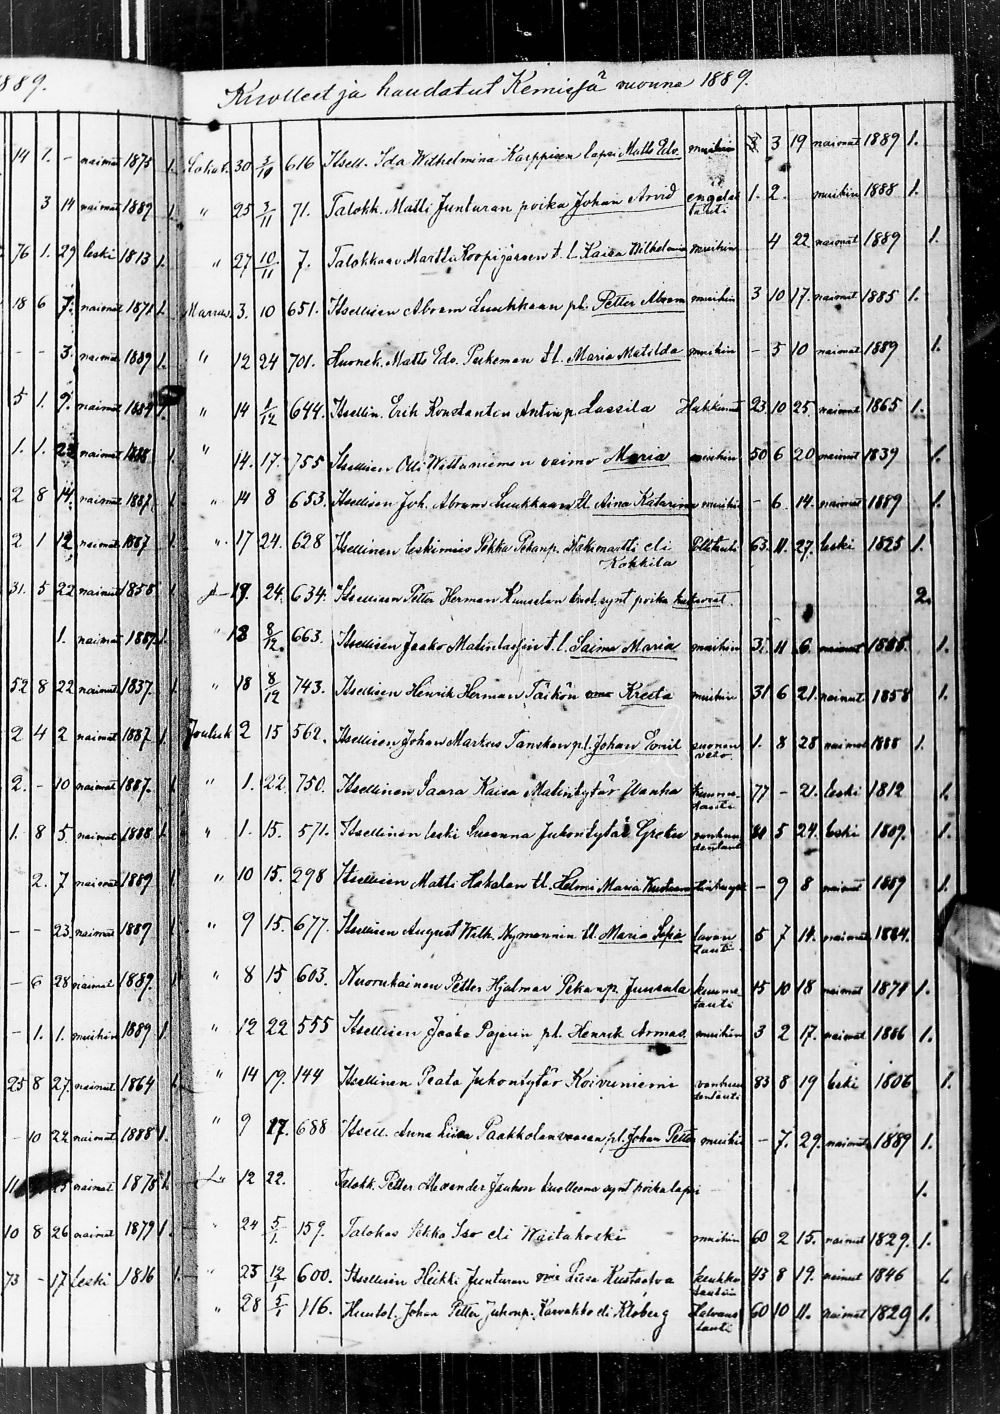 1889.
Kuolleet ja haudatut Kemissä vuonna 1889.
14 7. - naimat 1875 1.
3 14 naimat 1889 1.
76 1. 29 leski 1813 1.
18 6 7. naimat 1871 1.
- - 3. naimat 1889 1.
5 1. 9. naimat 1.
1. 1. naimat 1888 1.
2 8 14. naimat 1887 1.
2 1 12 naimat 1887 1.
31. 5 22 naimat 1858 1.
1. naimat 1887 1.
52 8 22 naimat 1837. 1.
2 4 2 naimat 1887. 1.
2. - 10 naimat 1887. 1.
1. 8 5 naimat 1888 1.
2. 7 naimat 1889 1.
- - 23. naimat 1889 1.
- 6 28 naimat 1889. 1.
- 1. 1. muihin 1889 1.
25 8 27. naimat 1864 1.
- 10 22 naimat 1888 1.
naimat 1878 1.
10 8 26 naimat 1879 1.
73 - 17 Leski 1816 1.
Lokak. 30 5/10 616 Itsell. Ida Wilhelmina Karppisen lapsi Matts Edv. muihin 3 19 naimat 1889 1.
" 25 3/11 71. Talokk. Matti Junturan poika Johan Arvid engelsi tauti 1. 2. muihin 1888 1.
" 27 10/11 7. Talokkaan Martti Koopijärven t. l. Kaisa Wilhelmina muihin 4 22 naimat 1889 1.
Marras. 3. 10 651. Itsellisen Abram Luukkaan pl. Petter Abram muihin 3 10 17. naimat 1885 1.
" 12 24 701. Huonek. Matts Edv. Pukeman tl. Maria Matilda muihin - 5 10 naimat 1889 1.
" 14 1/12 644. Itsellin. Erik Konstantin Antin p. Lassila Hukkunut 23 10 25. naimat 1865 1.
" 14. 17. 755 Itsellisen Olli Wittaniemen vaimo Maria muihin 50 6 20 naimat 1839 1.
" 14 8 653. Itsellisen Joh. Abram Luukkaan tl. Aina Katarina muihin - 6. 14. naimat 1889 1.
" 17 24. 628 Itsellinen leskimies Pekka Pekanp. Näkimartti eli 63. 11. 27. leski 1825 1.
Kokkila
24. 634. Itsellisen Petter Herman Kuuselan kuol. synt poika 2.
" 8/12 663. Itsellisen Jaako Matinlassin t. l. Saima Maria muihin 3. 11 6. naimat 1885. 1.
" 18 8/12 743. Itsellisen Henrik Herman Täikön vmo Kreeta muihin 31 6 21. naimat 1858 1.
Jouluk 2 15 562. Itsellisen Johan Markus Tanskan pl. Johan Emil suonen veto. 1. 8 28 naimat 1888 1.
" 1. 22. 750. Itsellinen Saara Kaisa Matintytär Wanha kuume tauti 77 - 21. leski 1812 1.
" 1. 15. 571. Itsellinen leski Susanna Juhontytär Greku 5 24. leski 1809. 1.
" 10 15. 298 Itsellisen Matti Hakalan tl. Helmi Maria - 9 8 naimat 1889 1.
" 9 15. 677. Itsellisen August Wilh. Nymannin tl. Maria Sofia lavan tauti 5 7 14. naimat 1884.
" 8 15 603. Nuorukainen Petter Hjalmar Pekanp. Juusola kuume tauti 15 10 18 naimat 1874 1.
" 12 22 555 Itsellisen Jaako Pajarin pl. Henrik Armas. muihin 3 2 17. naimat 1886 1.
" 14 19. 144 Itsellinen Peata Juhontytär Koivuniemi vanhuudentauti 83 8 19 leski 1806 1.
" 9 17. 688 Itsell. Anna Liisa Paakkolan pl. Johan Petter muihin - 7. 29. naimat 1889 1.
12 22. Talokk. Petter Alexander Jaukon kuolleena synt poikalapsi - 1.
" 24 5/1. 159. Talokas Pekka Iso eli Waitakoski muihin 60 2 15. naimat 1829. 1.
" 23 12/1 600. Itsellisen Heikki Junturan vmo Liisa Kustaatva keuhko tautiin 43 8 19. naimat 1846 1.
" 28 5/1 116. Huutol. Johan Petter Juhonp. Karvakko eli Kloberg Halvaus tauti 60 10 11. naimat 1829 1.